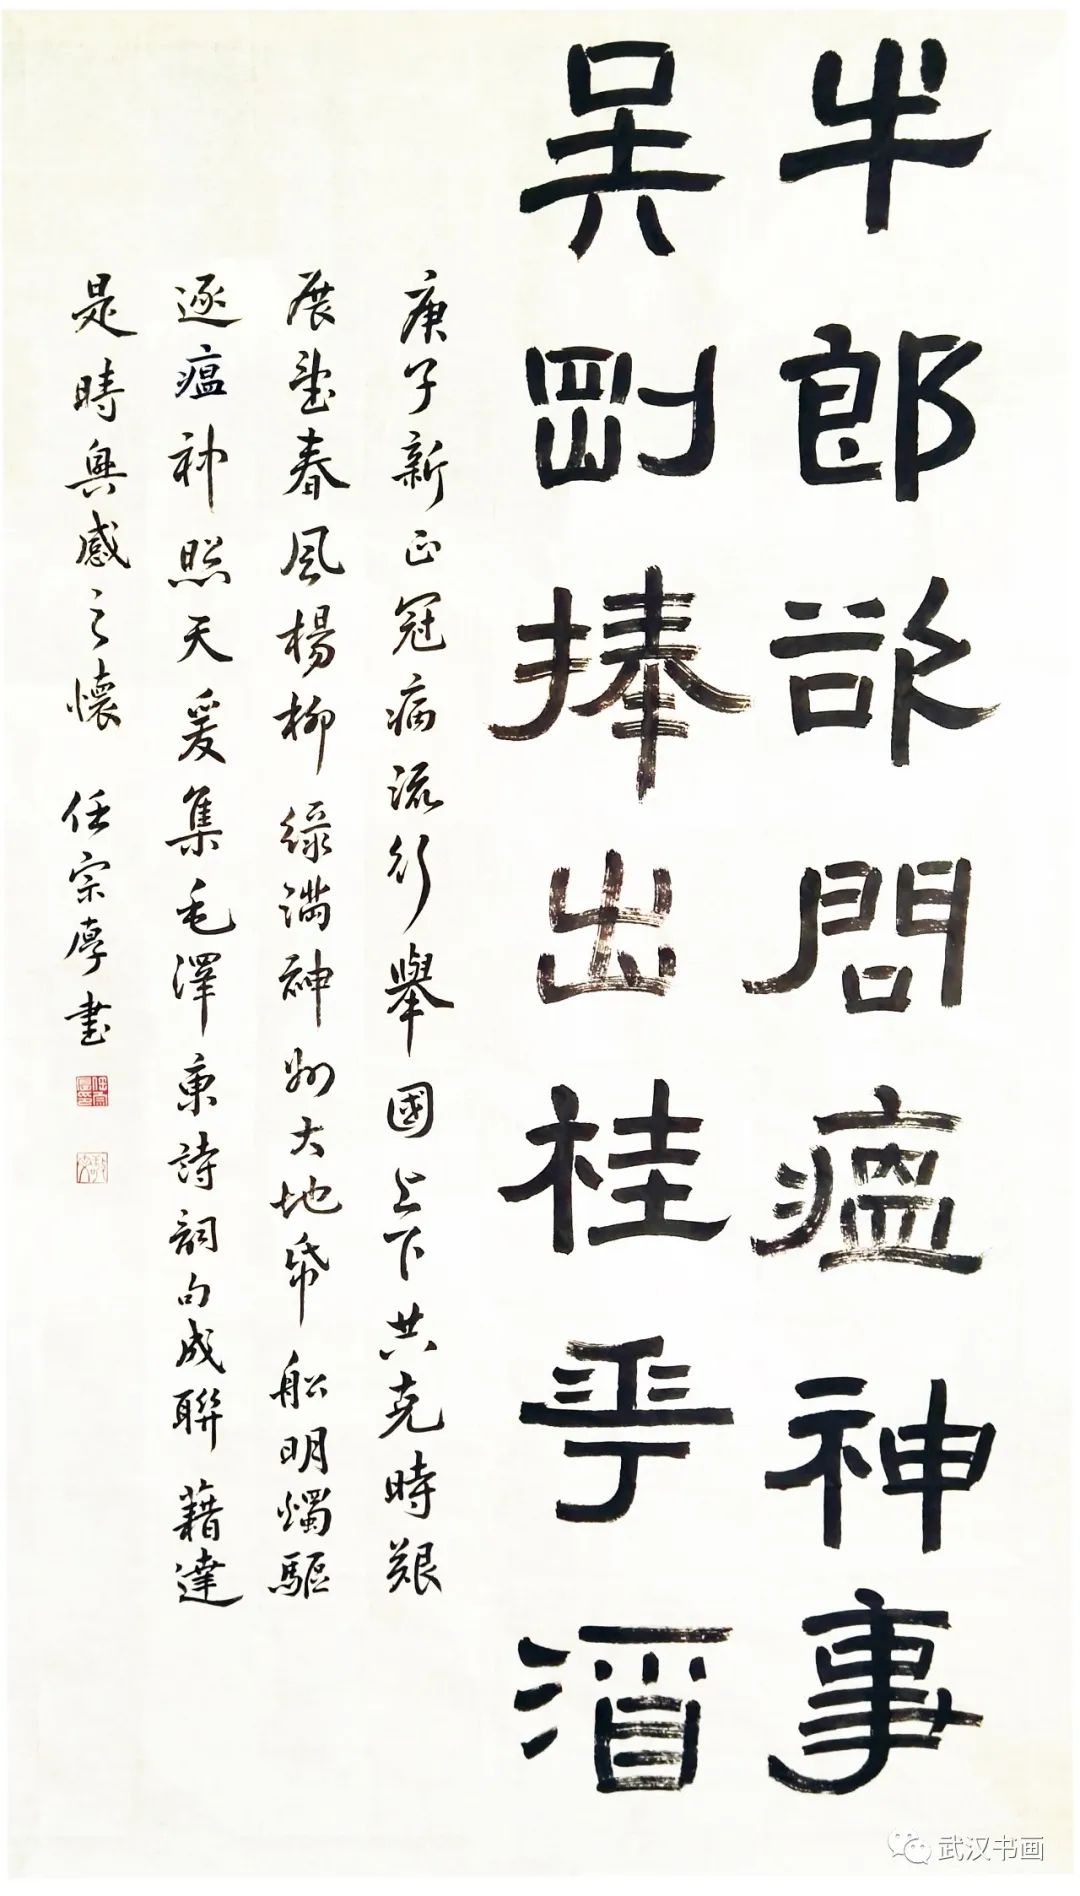 牛郎欲問瘟神事
吳剛捧出桂華酒
庚子新正冠病流行舉國上下共克時艱
展望春風楊柳綠滿神州大地帋船明燭驅
逐瘟神照天爰集毛澤東詩詞句成聯藉達
是時興感之懷 任宗厚書
武汉书画